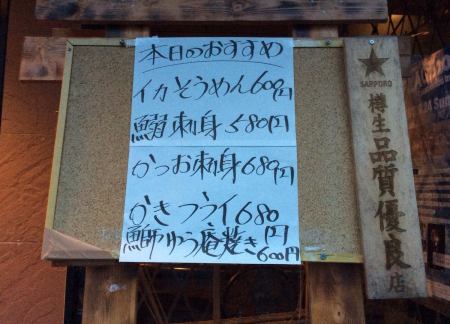 本日のおすすめ
イカそうめん600円
鰯刺身580円
かつお刺身680円
かきフライ680円
鰤ゆう庵焼き600円
★
SAPPORO
樽生
品質優良店